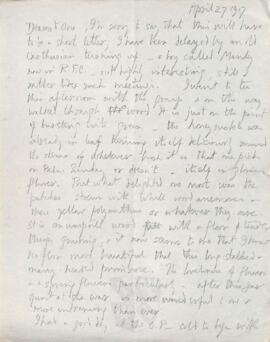 April 27. 1917
Dearest One, I'm sorry to say that this will have
to be a short letter, I have been delayed by an old
Carthusian turning up - a boy called
now in R.F.C. - not highly interesting, still I
rather like such meetings. I went to tea
this afternoon with the
walked through the wood. It is just on the point
of bursting into green - the honeysuckle was
already in leaf turning itself deliciously around
the stems of whatever bush it is that one picks
on Palm Sunday or doesn't - itself in glorious
flower. But what delighted me most was the
patches strewn with white wood anemones -
then yellow polyanthus or whatever they are.
It is an unspoilt wood with a floor of
things growing; it now seems to me that I knew
the floor most beautiful that this long
many headed primrose. The loveliness of flowers
- spring flowers particularly - after this
of the war is more wonderful & one is
more entrancing than ever.
I had a good day at the O.P. cold to begin with